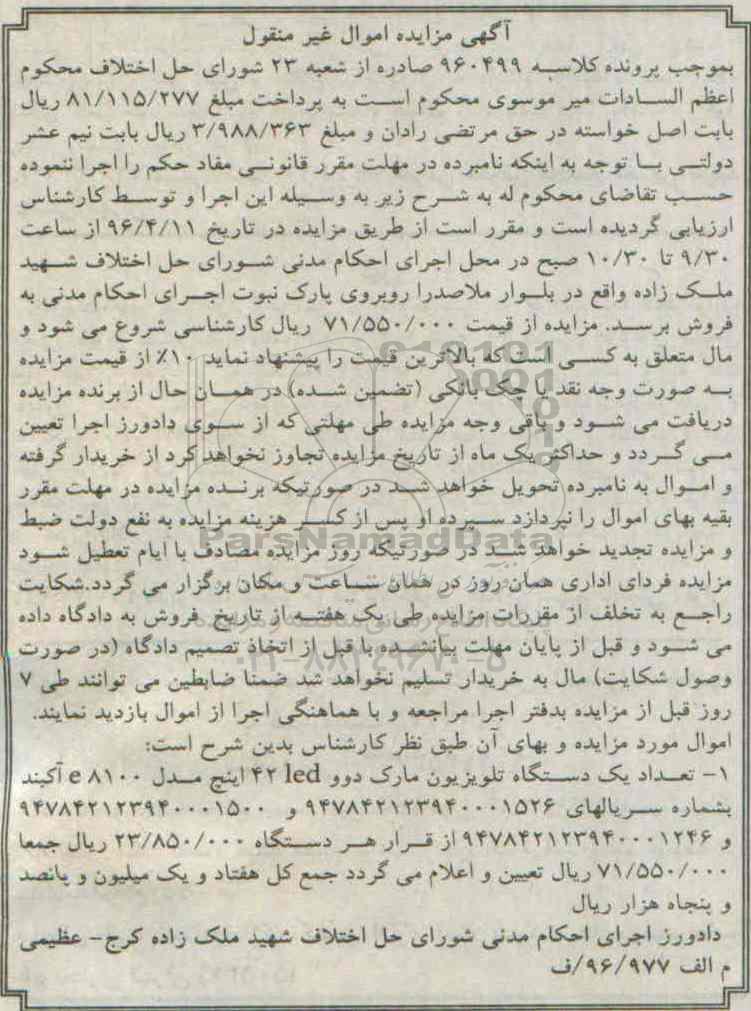 آگهی مزایده اموال غیر منقول
بموجب پرونده کلاسه ۹۶۰۴۹۹ صادره از شعبه ۲۳ شورای حل اختلاف محکوم
اعظم السادات میر موسوی محکوم است به پرداخت مبلغ ۸۱/۱۱۵/۲۷۷ ریال
بابت اصل خواسته در حق مرتضی رادان و مبلغ ۳/۹۸۸/۳۶۳ ریال بابت نیم عشر
دولتی با توجه به اینکه نامبرده در مهلت مقرر قانونی مفاد حکم را اجرا ننموده
حسب تقاضای محکوم له به شرح زیر به وسیله این اجرا و توسط کارشناس
ارزیابی گردیده است و مقرر است از طریق مزایده در تاریخ ۹۶/۴/۱۱ از ساعت
۹/۳۰ تا ۱۰/۳۰ صبح در محل اجرای احکام مدنی شورای حل اختلاف شهید
ملک زاده واقع در بلوار ملاصدرا روبروی پارک نبوت اجرای احکام مدنی به
فروش برسد. مزایده از قیمت ۷۱/۵۵۰/۰۰۰ ریال کارشناسی شروع می شود و
مال متعلق به کسی است که بالاترین قیمت را پیشنهاد نماید ۱۰٪ از قیمت مزایده
به صورت وجه نقد یا چک بانکی (تضمین شده) در همان حال از برنده مزایده
دریافت می شود و باقی وجه مزایده طی مهلتی که از سوی دادورز اجرا تعیین
می گردد و حداکثر یک ماه از تاریخ مزایده تجاوز نخواهد کرد از خریدار گرفته
و اموال به نامبرده تحویل خواهد شد در صورتیکه برنده مزایده در مهلت مقرر
بقیه بهای اموال را نپردازد سپرده او پس از کسر هزینه مزایده به نفع دولت ضبط
ParsNamadData
و مزایده تجدید خواهد شد در صورتیکه روز مزایده مصادف با ایام تعطیل شود
مزایده فردای اداری همان روز در همان ساعت و مکان برگزار می گردد.شکایت
راجع به تخلف از مقررات مزایده طی یک هفته از تاریخ فروش به دادگاه داده
می شود و قبل از پایان مهلت بیانشده با قبل از اتخاذ تصمیم دادگاه (در صورت
وصول شکایت) مال به خریدار تسلیم نخواهد شد ضمنا ضابطین می توانند طی ۷
روز قبل از مزایده بدفتر اجرا مراجعه و با هماهنگی اجرا از اموال بازدید نمایند.
اموال مورد مزایده و بهای آن طبق نظر کارشناس بدین شرح است:
۱- تعداد یک دستگاه تلویزیون مارک دوو led ۴۲ اینچ مدل e ۸۱۰۰ آکبند
بشماره سریالهای ۹۴۷۸۴۲۱۲۳۹۴۰۰۰۱۵۲۶ و ۹۴۷۸۴۲۱۲۳۹۴۰۰۰۱۵۰۰
و ۹۴۷۸۴۲۱۲۳۹۴۰۰۰۱۲۴۶ از قرار هر دستگاه ۲۳/۸۵۰/۰۰۰ ریال جمعا
۷۱/۵۵۰/۰۰۰ ریال تعیین و اعلام می گردد جمع کل هفتاد و یک میلیون و پانصد
و پنجاه هزار ریال
دادورز اجرای احکام مدنی شورای حل اختلاف شهید ملک زاده کرج- عظیمی
م الف ۹۶/۹۷۷/ف